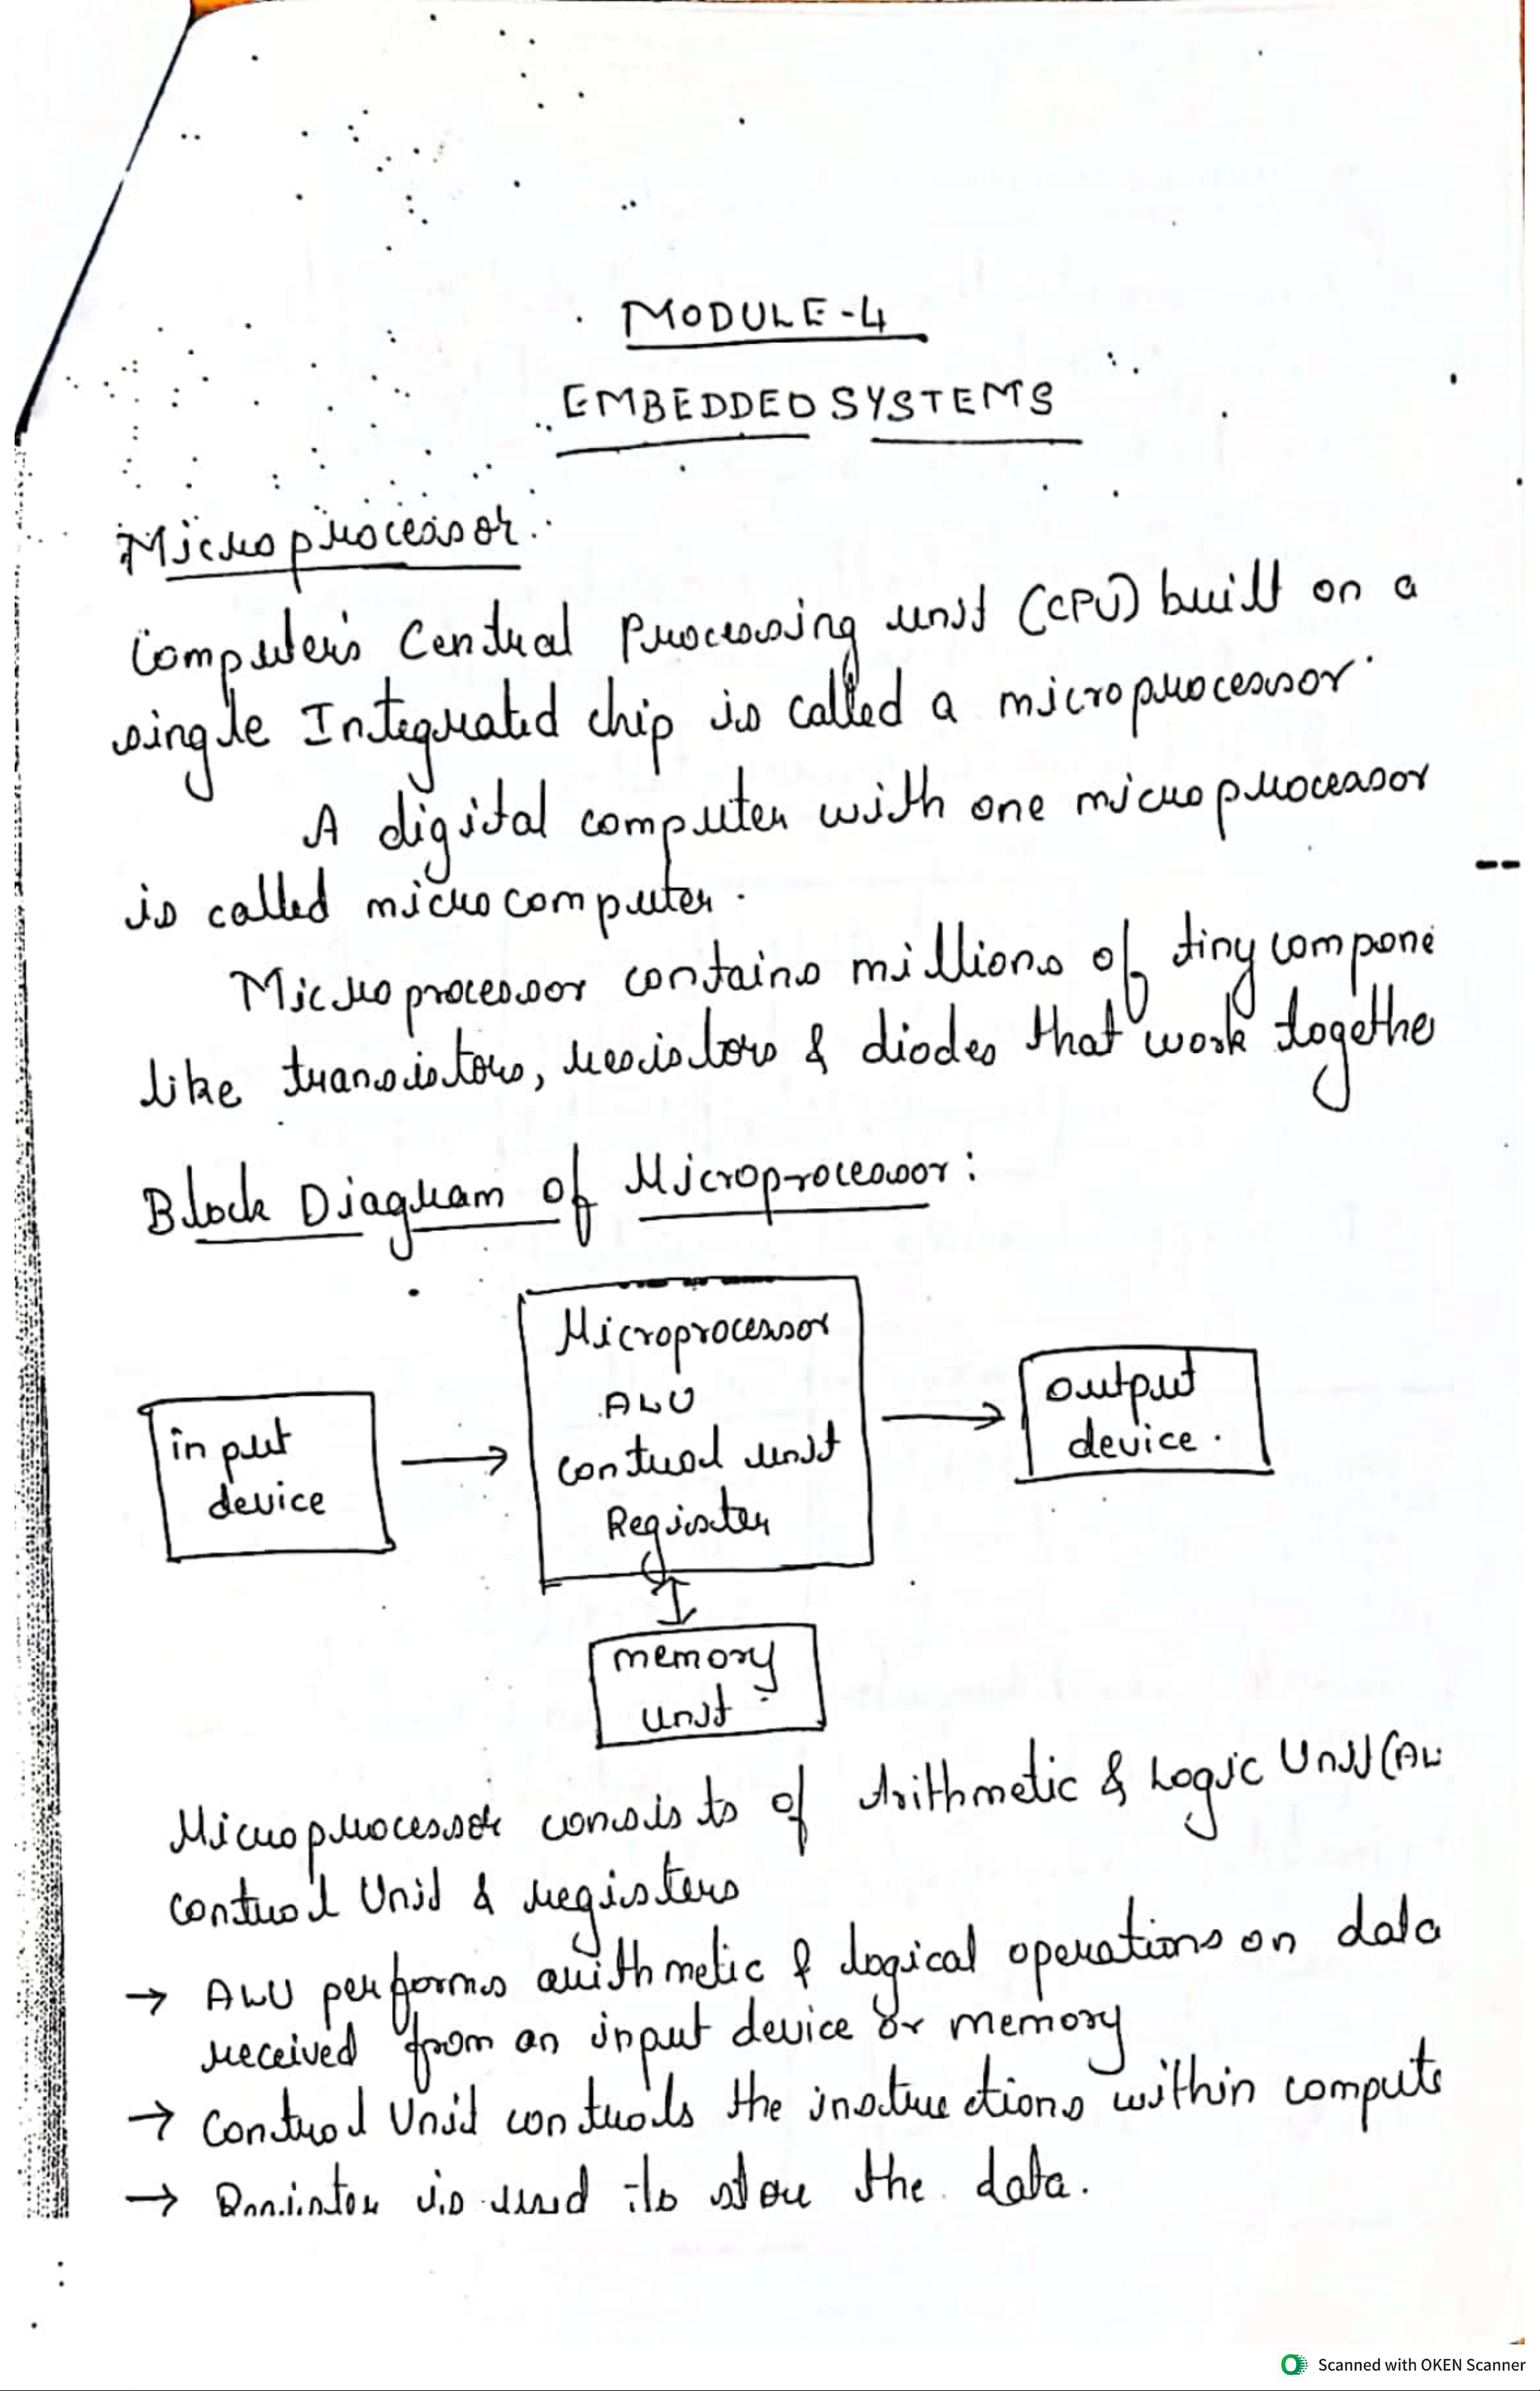 MODULE-4
EMBEDDED SYSTEMS
Microprocessor:
Computer's Central Processing unit (CPU) built on a
single Integrated chip is called a microprocessor.
A digital computer with one microprocessor
is called microcomputer.
Microprocessor contains millions of tiny compone
like transistors, resistors & diodes that work togethe
Block Diagram of Microprocessor:
Microprocessor
ALU
control unit
Register
input
device
output
device.
memory
unit
Microprocessor consists of Arithmetic & Logic Unit (AL
control Unit & registers
→ ALU performs arithmetic & logical operations on data
received from an input device or memory
→ Control Unit controls the instructions within compute
→ Register is used to store the data.
Scanned with OKEN Scanner